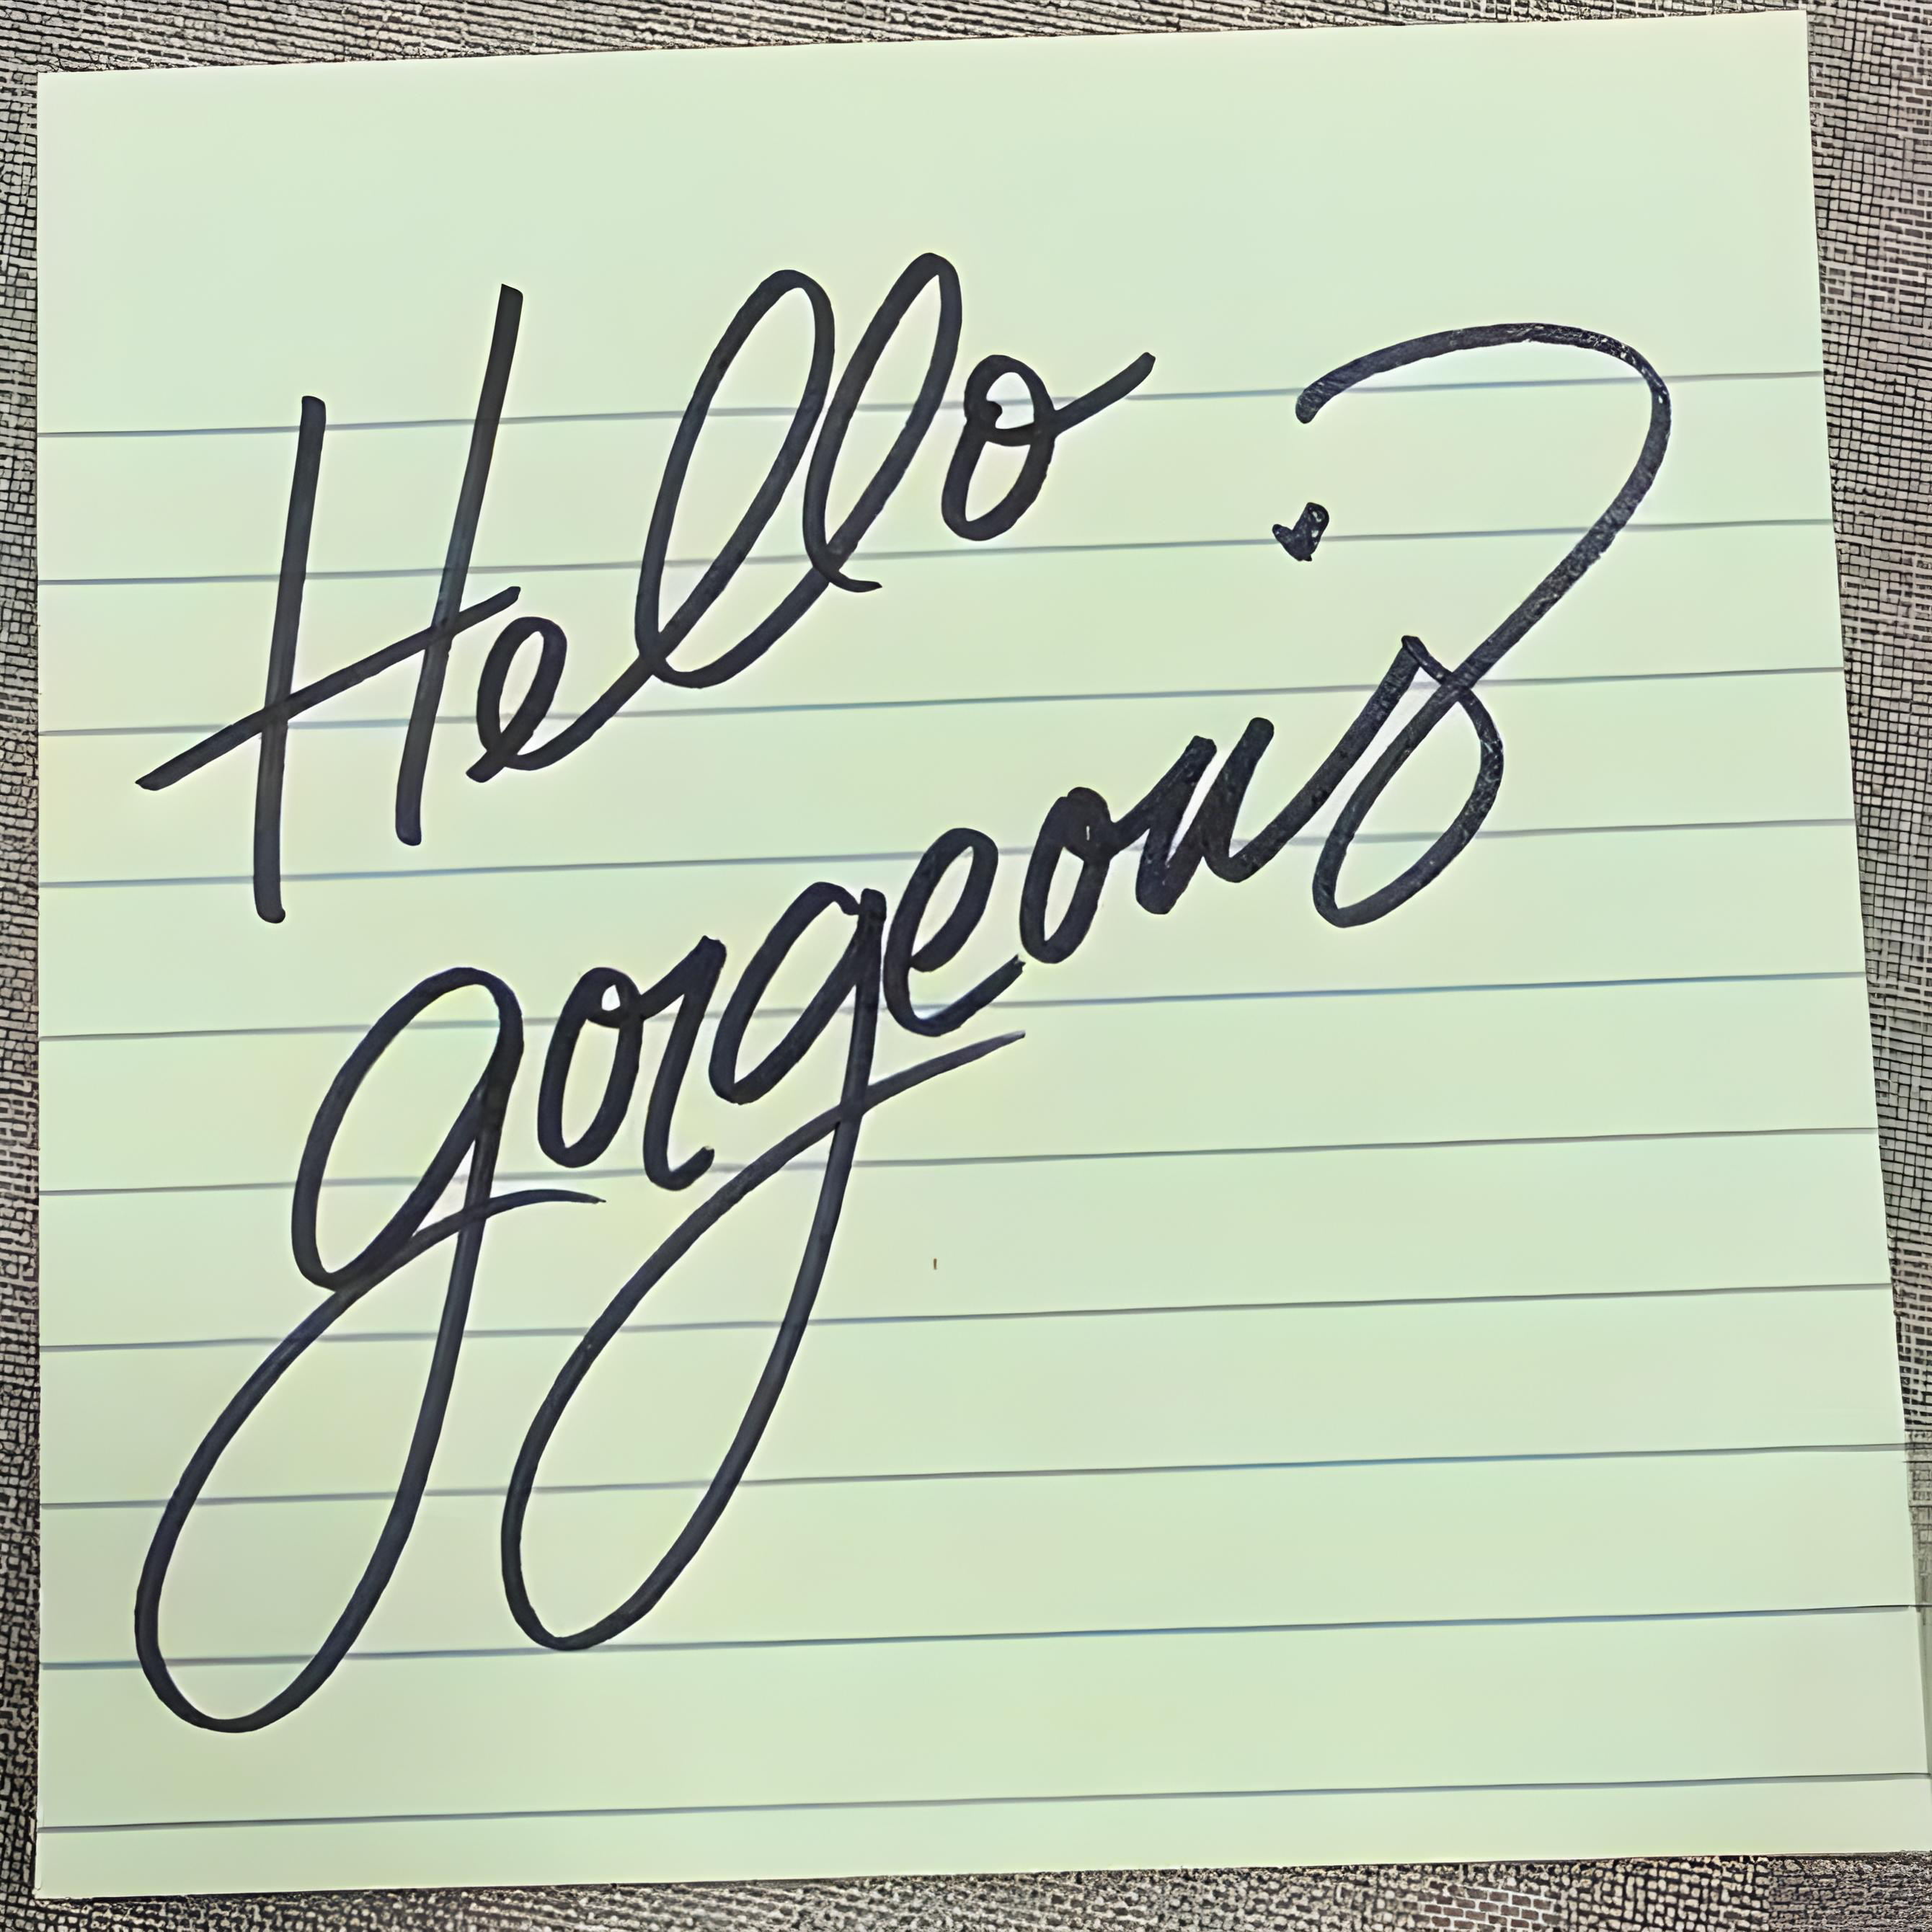 Hello
gorgeous